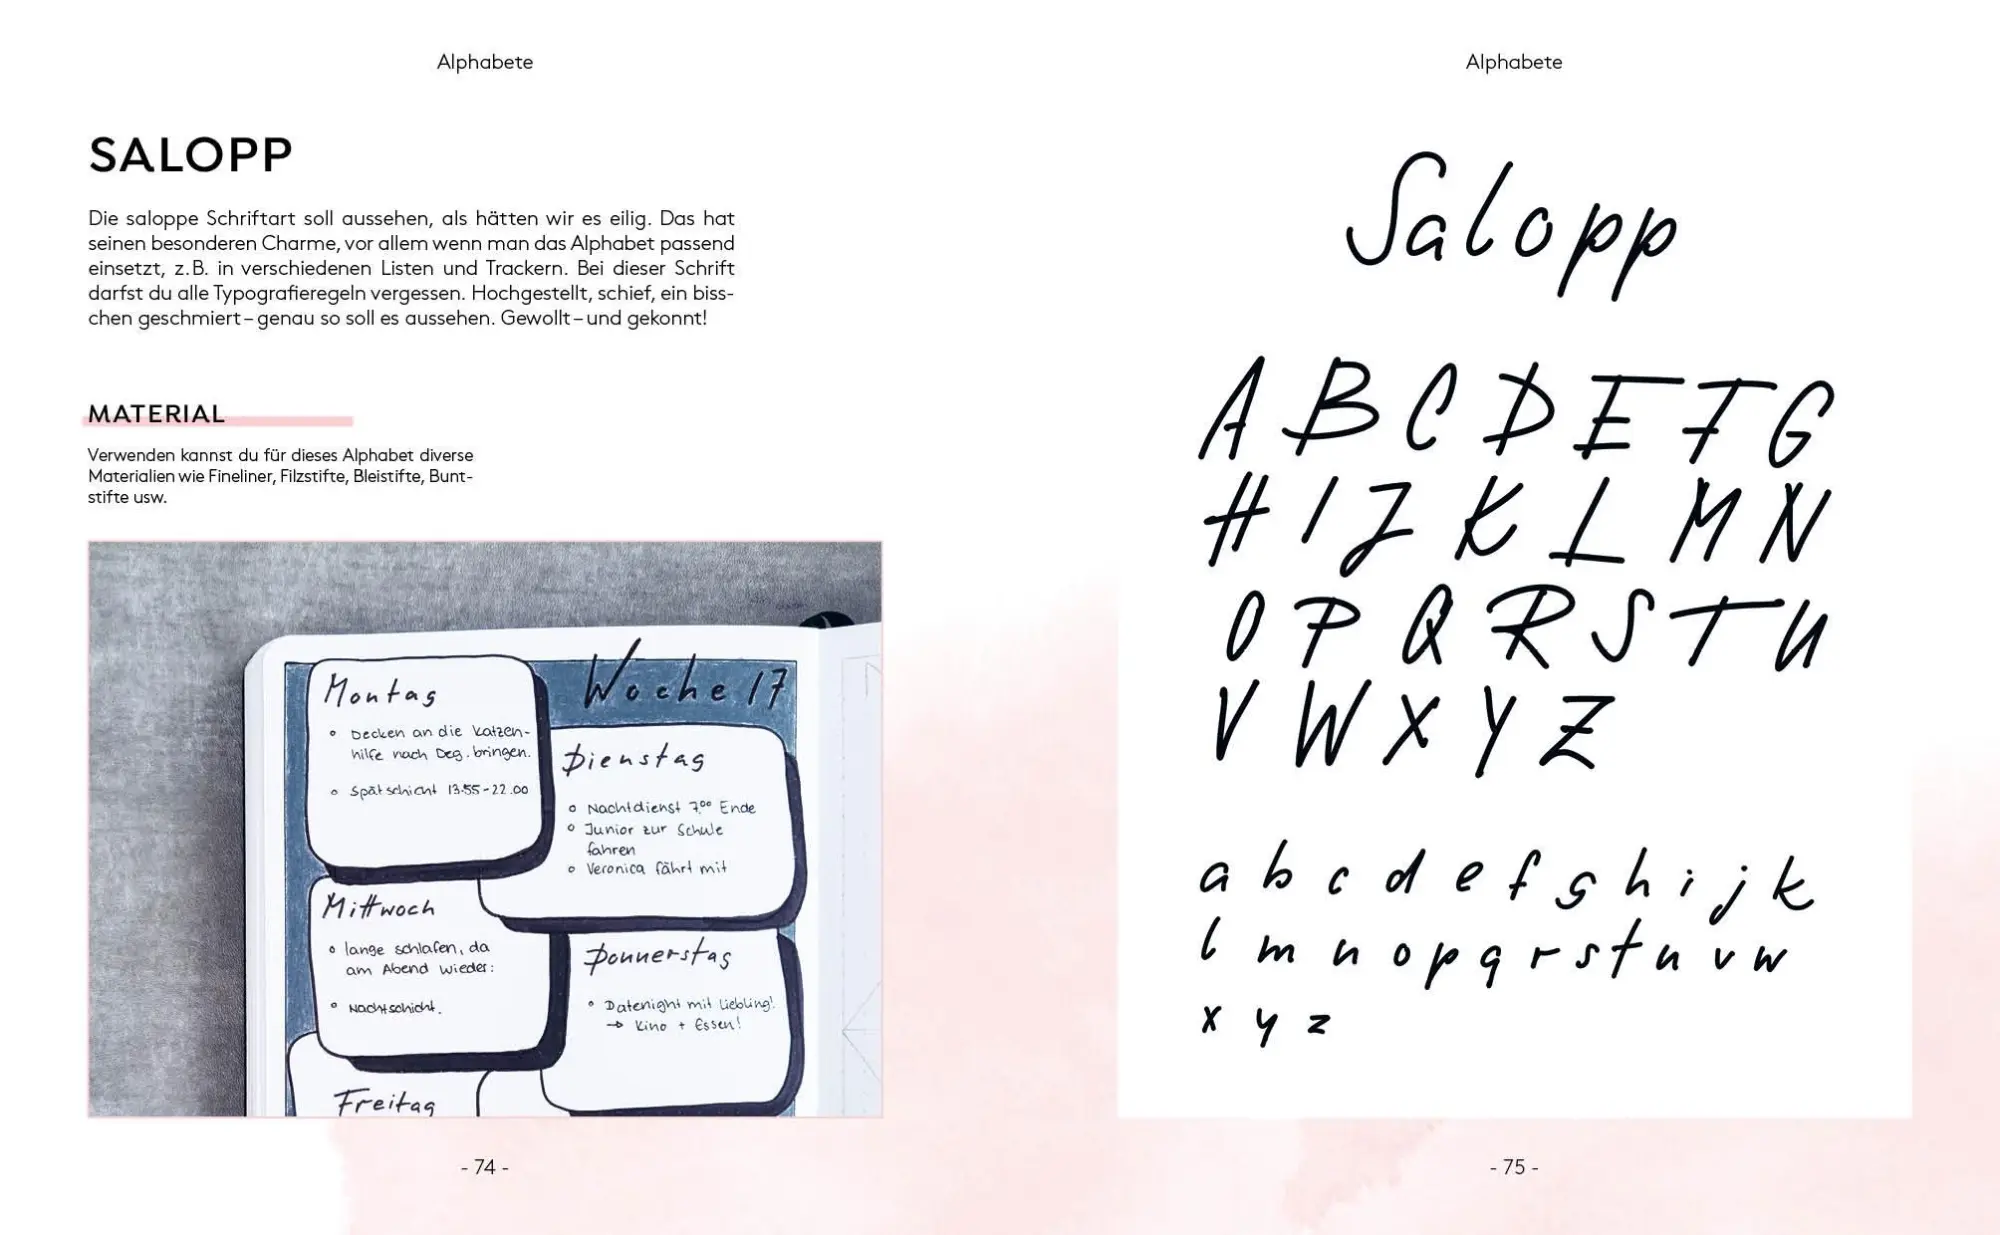 Alphabete
SALOPP
Die saloppe Schriftart soll aussehen, als hätten wir es eilig. Das hat
seinen besonderen Charme, vor allem wenn man das Alphabet passend
einsetzt, z.B. in verschiedenen Listen und Trackern. Bei dieser Schrift
darfst du alle Typografieregeln vergessen. Hochgestellt, schief, ein biss-
chen geschmiert – genau so soll es aussehen. Gewollt – und gekonnt!
MATERIAL
Verwenden kannst du für dieses Alphabet diverse
Materialien wie Fineliner, Filzstifte, Bleistifte, Bunt-
stifte usw.
Woche 17
Montag
Decken an die Katzen-
hilfe nach Deg. bringen.
Spätschicht 13:55-22.00
Dienstag
Nachtdienst 7⁰⁰ Ende
Junior zur Schule
fahren
Veronica fährt mit
Mittwoch
lange schlafen, da
am Abend wieder:
Nachtschicht.
Donnerstag
Datenight mit Liebling!
→ Kino + Essen!
Freitag
- 74 -
Alphabete
Salopp
A B C D E F G
H I J K L M N
O P Q R S T U
V W X Y Z
a b c d e f g h i j k
l m n o p q r s t u v w
x y z
- 75 -